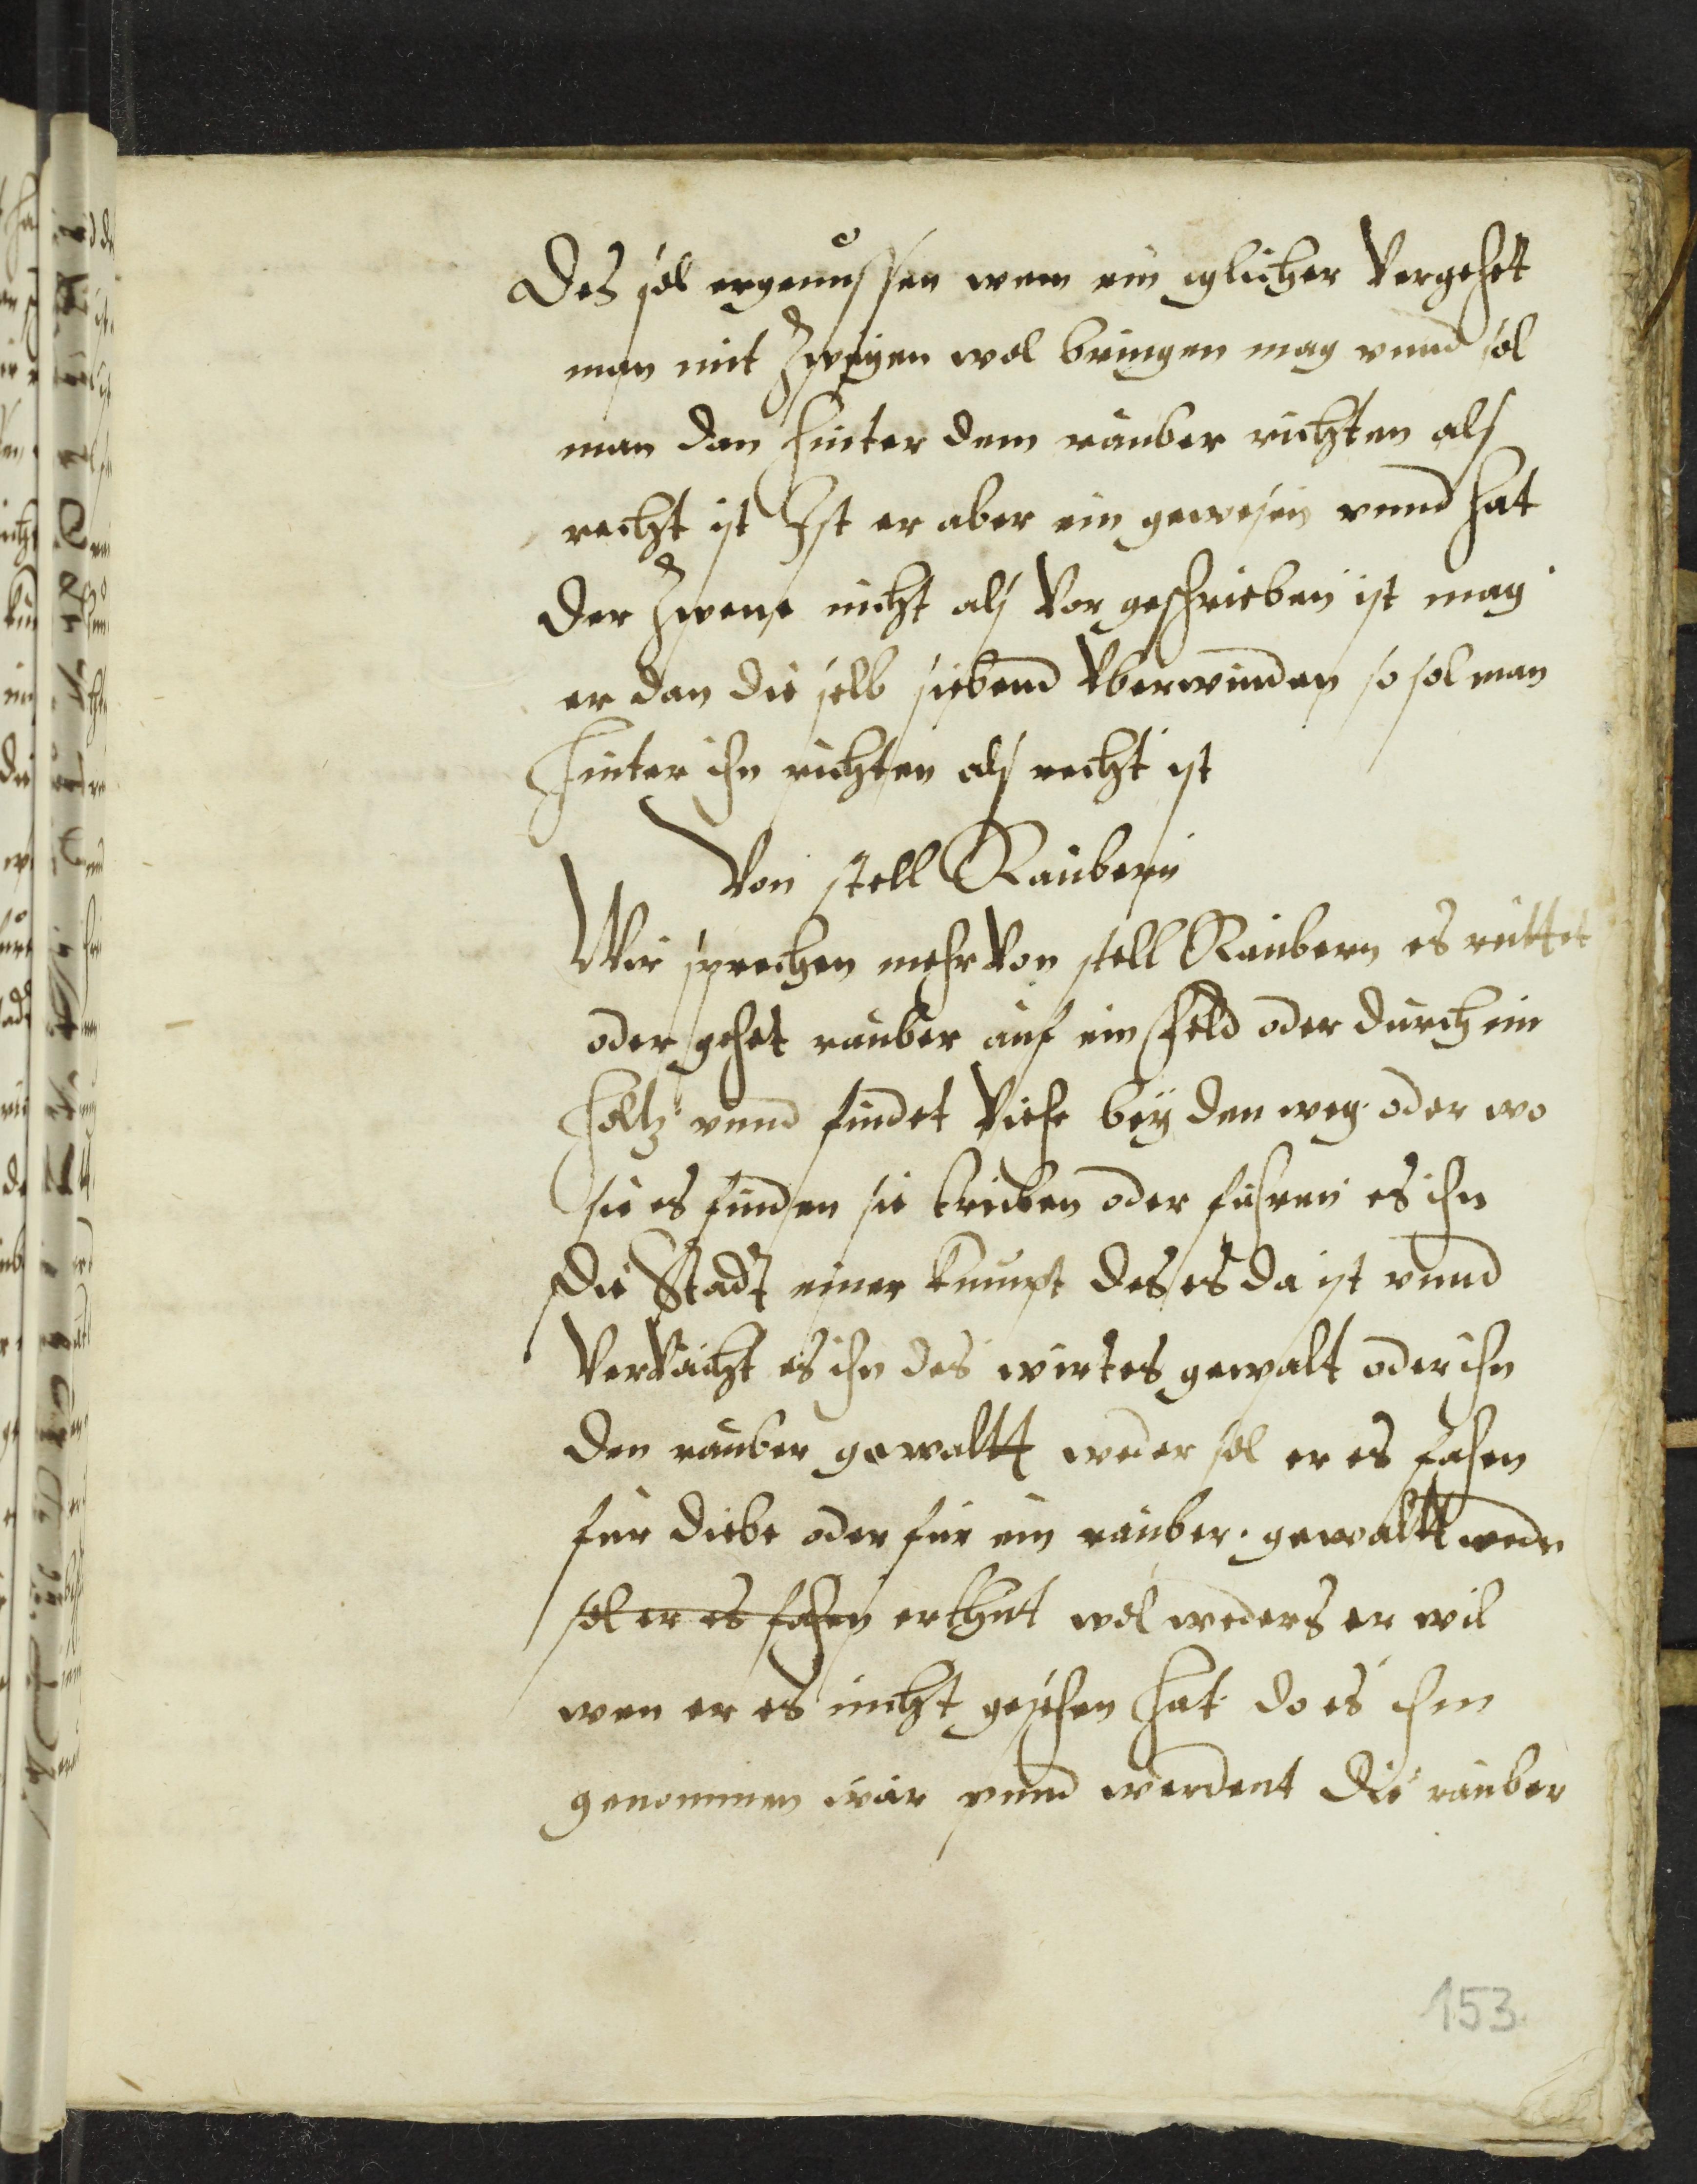 Des sol ergenüssen wem ein iglicher Vergehet
man mit Zweyen wol bringen mag vnnd sol
man dan hinter dem räuber richten als
recht ist Ist er aber ein gewesen vnnd hat
der Zwene nicht als Vor geschrieben ist mag
er dan die selb siebend Vberwinden so sol man
hinter ihn richten als recht ist
Von stell Raubern
Wir sprechen mehr Von stell Raubern es reittet
oder gehet rauber auf ein Feld oder durch ein
Holtz vnnd findet Viehe bey den weg oder wo
sie es finden sie treiben oder fuhren es ihn
die Stadt einer kumpt des es da ist vnnd
Verkaicht es ihn des wirtes gewalt oder ihn
den rauber gewaltt weder sol er es fahen
für diebe oder für ein rauber. gewaltt weder
sol er es fahen er thut wol weders er wil
wen er es nicht gesehen hat do es ihm
genommen war vnnd werdent die rauber
153